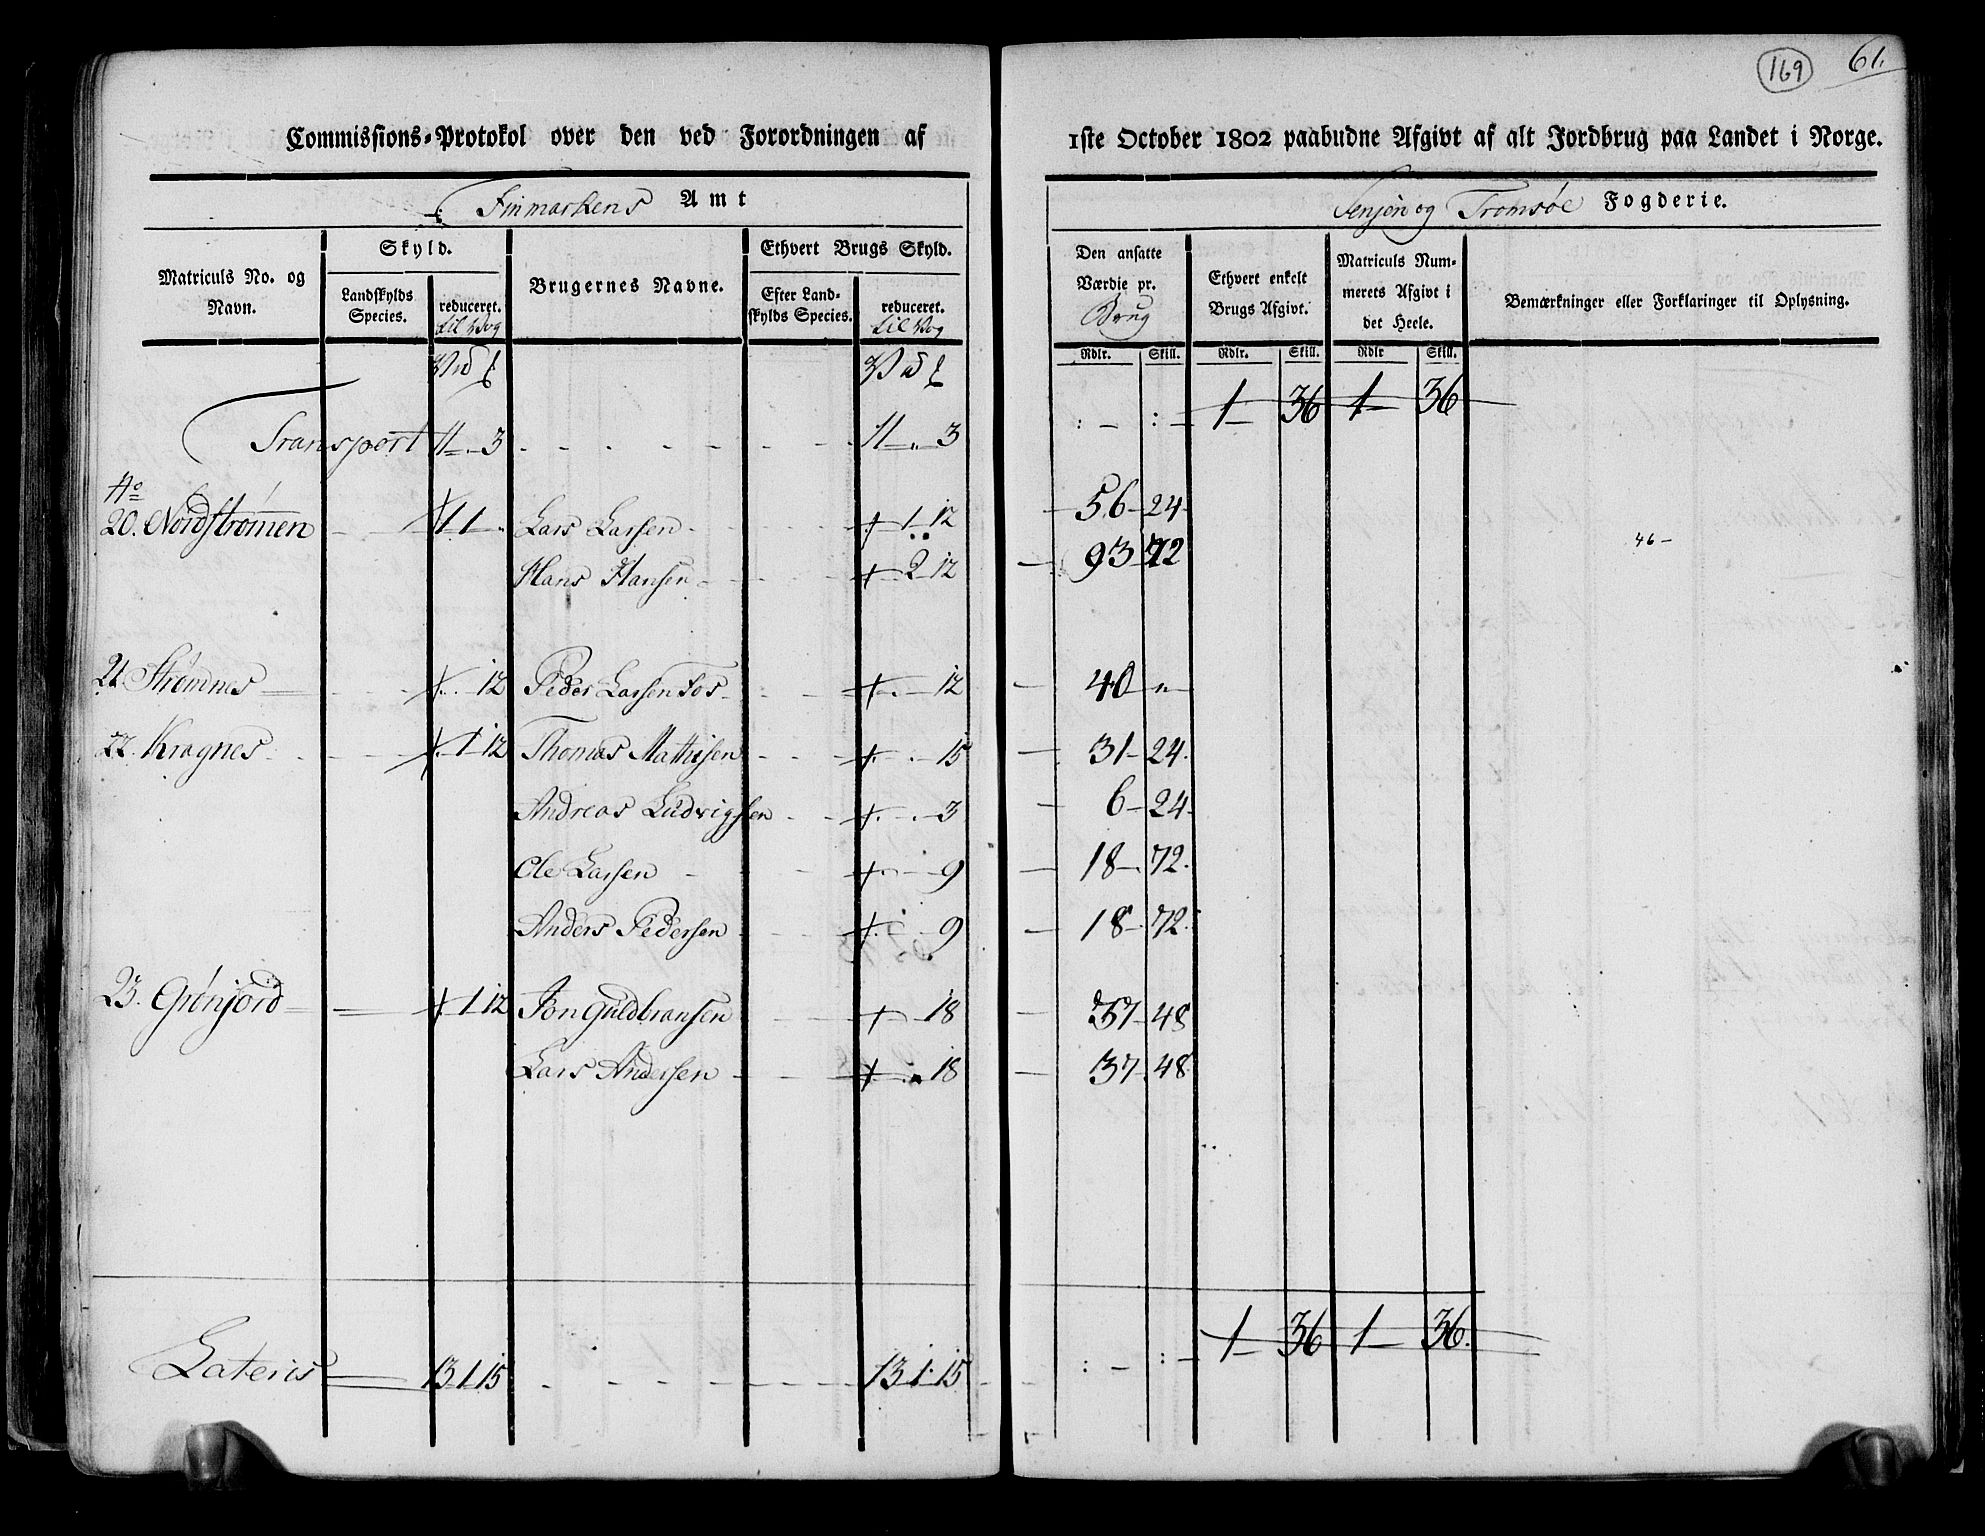 169 61.
Commissions-Protokol over den ved Forordningen af 1ste October 1802 paabudne Afgivt af alt Jordbrug paa Landet i Norge.
Finmarkens Amt
Senjen og Tromsøe Fogderie.
Matriculs No. og Navn.
Skyld.
Landskylds Species.
reduceret. til Vog
Brugernes Navne.
Ethvert Brugs Skyld.
Efter Landskylds Species.
reduceret. til Vog
Den ansatte Værdie pr. Brug
Ethvert enkelt Brugs Afgivt.
Matriculs Nummerets Afgivt i det Heele.
Bemærkninger eller Forklaringer til Oplysning.
Rdlr. Skill. Rdlr. Skill. Rdlr Skill.
Transport 11 - 3 11 - 3 1 36 1 36
No
20. Nordstrømen 1 1 - Lars Larsen 1 12 56 24
Hans Hansen 2 12 93 72 46 -
21 Strømnes 12 Peder Larsen Fos 12 40 "
22. Kragnes 1 12 Thomas Mathisen 15 31 24
Andreas Ludvigsen 3 6 24
Ole Larsen 9 18 72
Anders Pedersen 9 18 72
23. Grønjord 1 12 Jon Guldbransen 18 37 48
Lars Andersen 18 37 48
Lateris 13 1 15 13 1 15 1 36 1 36